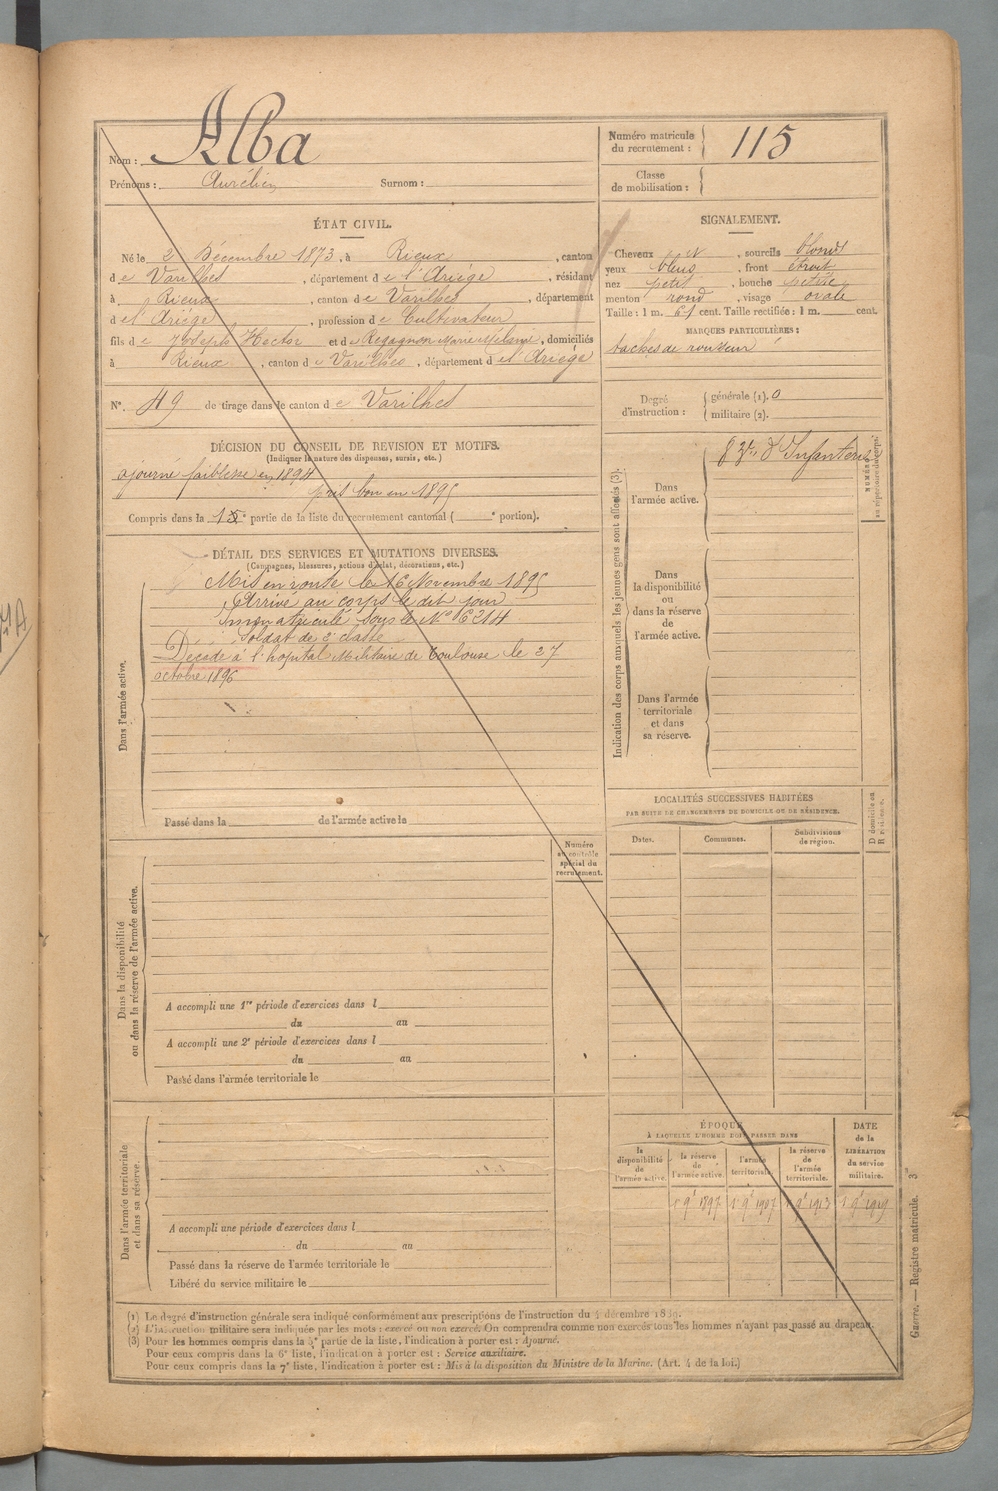 Nom : Alba
Prénoms : Aurélien Surnom :
Numéro matricule du recrutement : 115
Classe de mobilisation :
ÉTAT CIVIL.
Né le 2 Décembre 1873, à Rieux, canton
de Varilhes, département de l'Ariège, résidant
à Rieux, canton de Varilhes, département
de l'Ariège, profession de Cultivateur
fils de Joseph Hector et de Regagnon Marie Mélanie, domiciliés
à Rieux, canton de Varilhes, département de l'Ariège
N°. 49 de tirage dans le canton de Varilhes
SIGNALEMENT.
Cheveux et, sourcils blonds
yeux bleus, front étroit
nez petit, bouche petite
menton rond, visage ovale
Taille : 1 m. cent. Taille rectifiée : 1 m. cent.
MARQUES PARTICULIÈRES :
taches de rousseur
Degré d'instruction : générale (1). 0
militaire (2).
DÉCISION DU CONSEIL DE REVISION ET MOTIFS.
(Indiquer la nature des dispenses, sursis, etc.)
ajourné faiblesse en 1894
pris bon en 1895
Compris dans la partie de la liste du recrutement cantonal ( ° portion).
DÉTAIL DES SERVICES ET MUTATIONS DIVERSES.
(Campagnes, blessures, actions d'éclat, décorations, etc.)
Dans l'armée active.
Mis en route le 16 Novembre 1895
Arrivé au corps le dit jour
immatriculé sous le N° 16214
Soldat de 2e classe
Décédé à l'hopital Militaire de Toulouse le 27
octobre 1896
Passé dans la de l'armée active le
Indication des corps auxquels les jeunes gens sont affectés (3).
Dans l'armée active.
83e d'Infanterie
NUMÉRO au répertoire du corps.
Dans la disponibilité ou dans la réserve de l'armée active.
Dans l'armée territoriale et dans sa réserve.
LOCALITÉS SUCCESSIVES HABITÉES
PAR SUITE DE CHANGEMENTS DE DOMICILE OU DE RÉSIDENCE.
Dates. Communes. Subdivisions de région. D domicile ou R résidence.
Numéro au contrôle spécial du recrutement.
Dans la disponibilité ou dans la réserve de l'armée active.
A accompli une 1re période d'exercices dans l
du au
A accompli une 2e période d'exercices dans l
du au
Passé dans l'armée territoriale le
Dans l'armée territoriale et dans sa réserve.
A accompli une période d'exercices dans l
du au
Passé dans la réserve de l'armée territoriale le
Libéré du service militaire le
ÉPOQUE
À LAQUELLE L'HOMME DOIT PASSER DANS
la disponibilité de l'armée active.
la réserve de l'armée active.
l'armée territoriale.
la réserve de l'armée territoriale.
DATE de la LIBÉRATION du service militaire.
1 9e 1897 1 9e 1907 1 9e 1913 1 9e 1919
(1) Le degré d'instruction générale sera indiqué conformément aux prescriptions de l'instruction du 4 décembre 1889.
(2) L'instruction militaire sera indiquée par les mots : exercé ou non exercé. On comprendra comme non exercés tous les hommes n'ayant pas passé au drapeau.
(3) Pour les hommes compris dans la 5e partie de la liste, l'indication à porter est : Ajourné.
Pour ceux compris dans la 6e liste, l'indication à porter est : Service auxiliaire.
Pour ceux compris dans la 7e liste, l'indication à porter est : Mis à la disposition du Ministre de la Marine. (Art. 4 de la loi.)
Guerre. — Registre matricule. 3